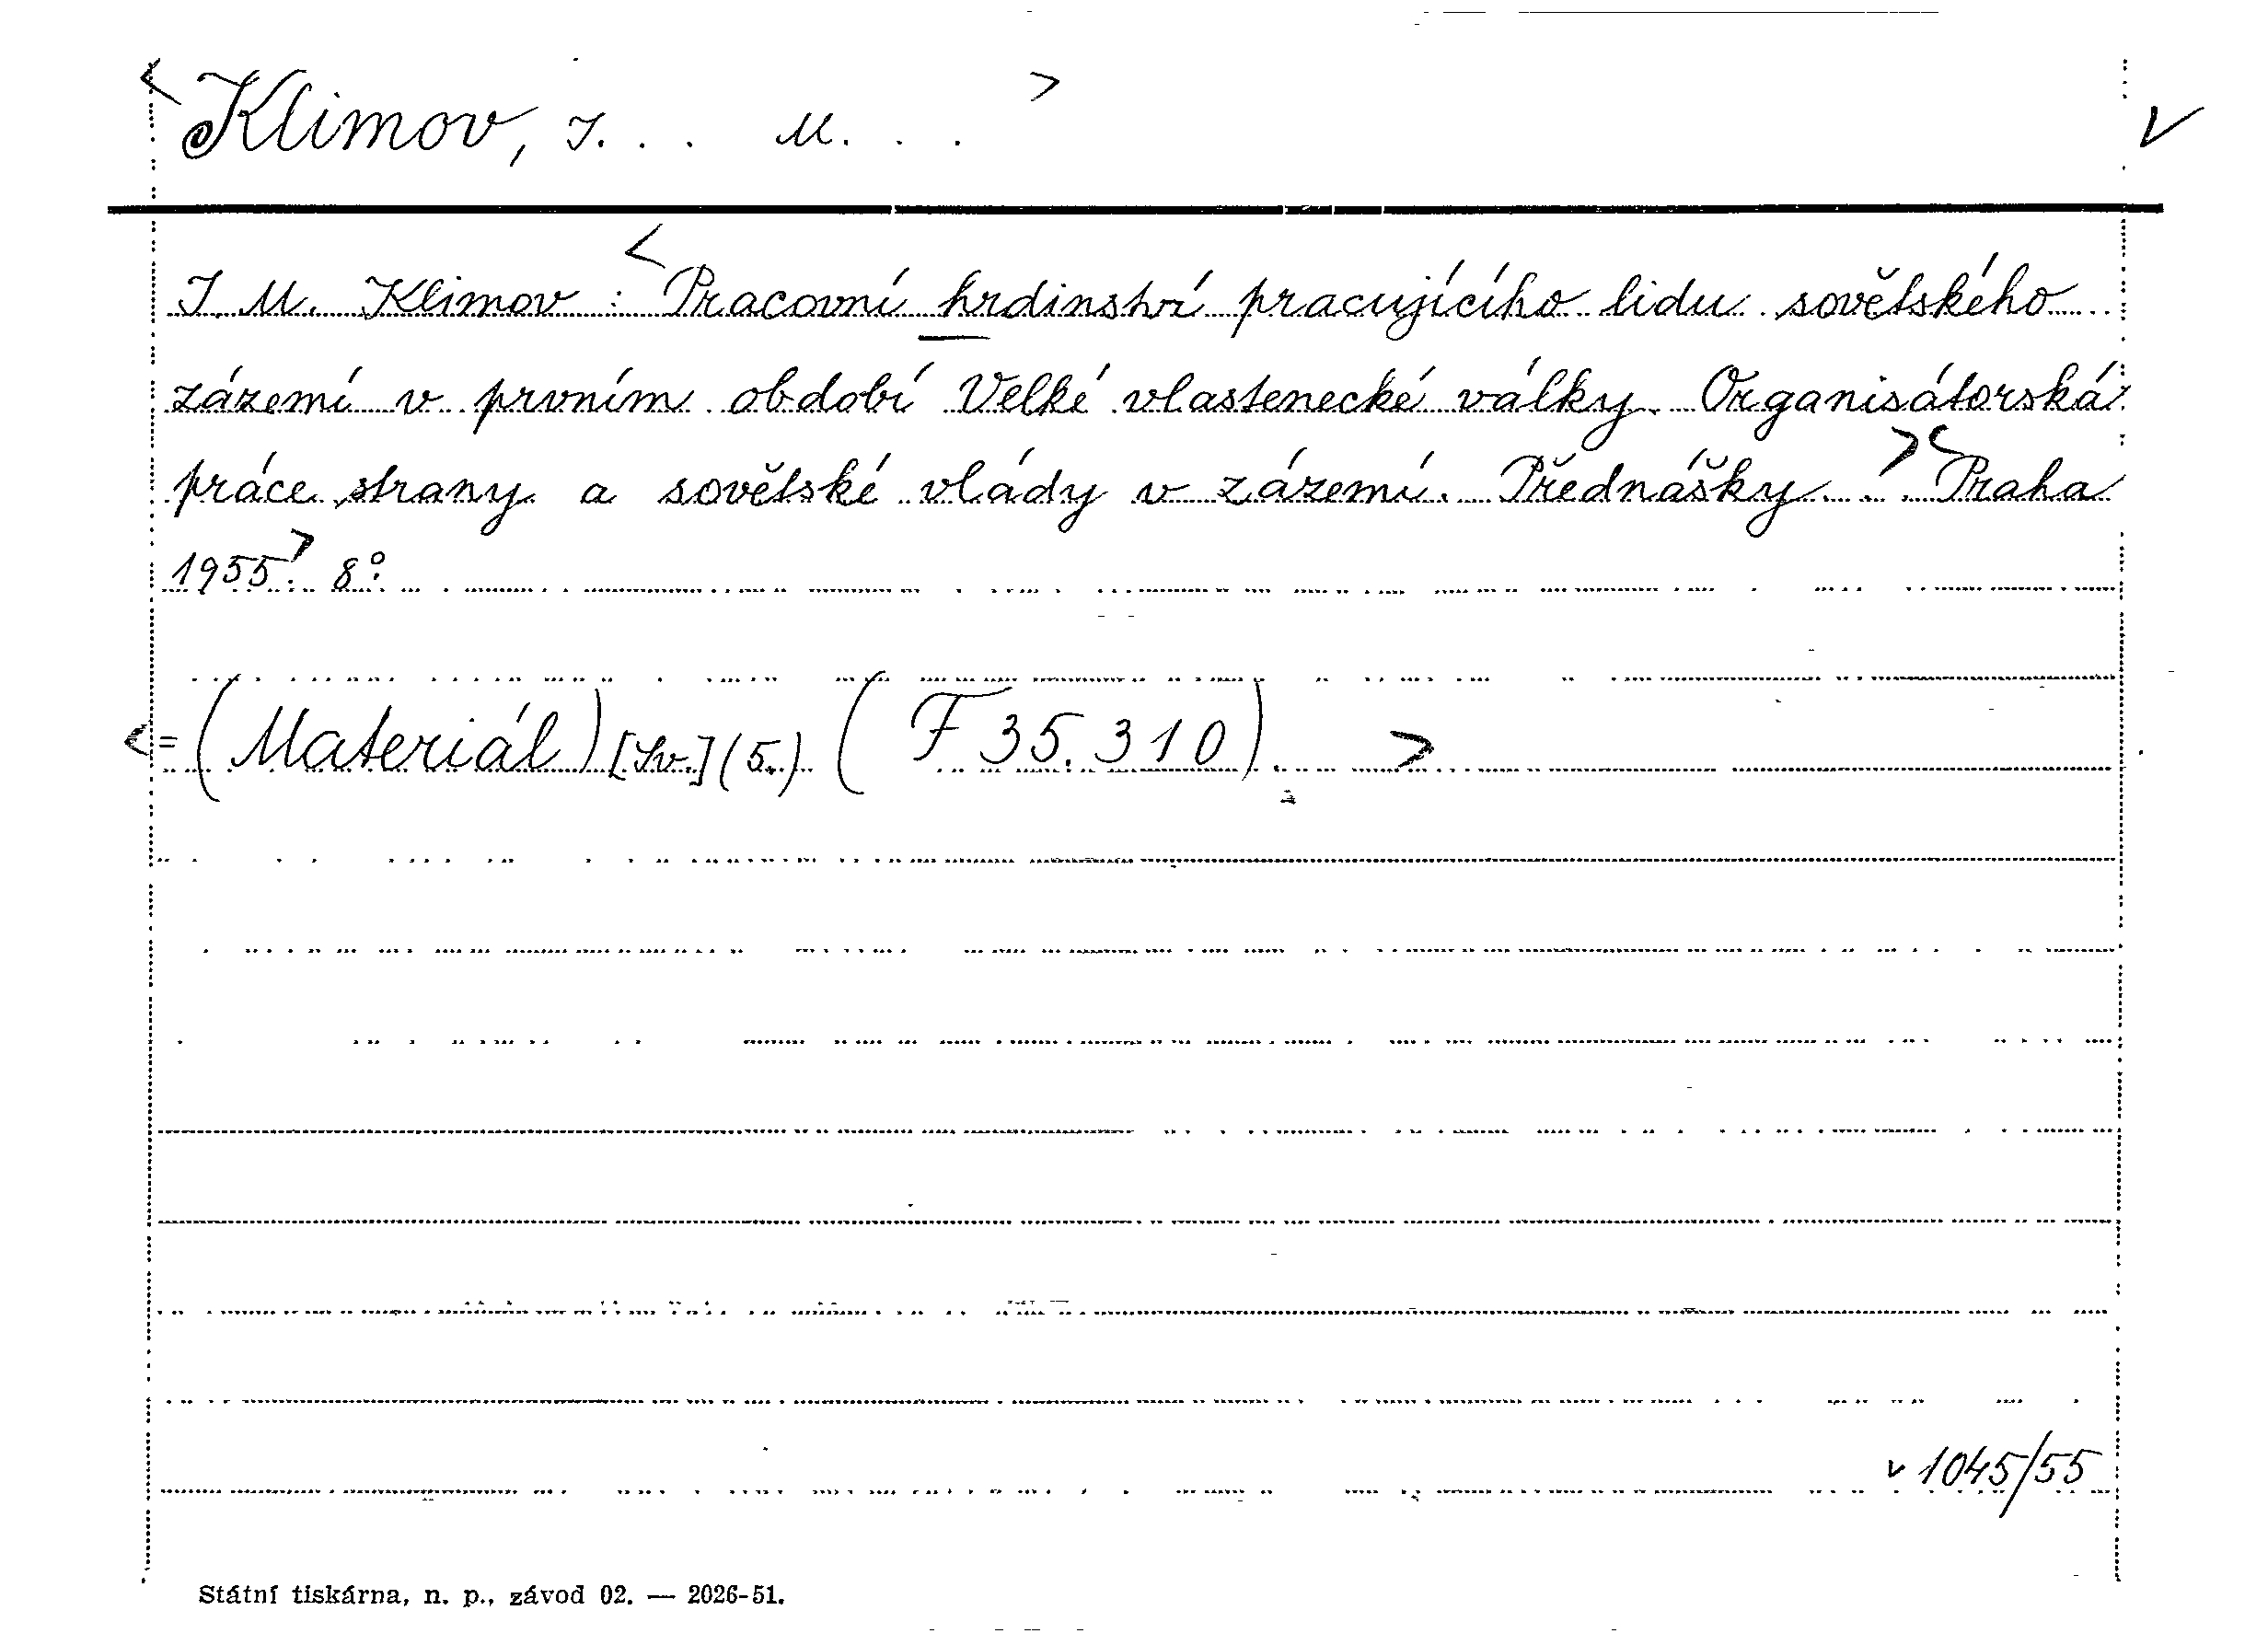 <Klimov, I. . . M. . . > V
I. M. Klimov : <Pracovní hrdinství pracujícího lidu sovětského
zázemí v prvním období Velké vlastenecké války. Organisátorská
práce strany a sovětské vlády v zázemí. Přednášky. . . > <Praha
1955>. 8°.
<= (Materiál) [Sv.] (5.) (F 35.310). >
v 1045/55
Státní tiskárna, n. p., závod 02. — 2026-51.